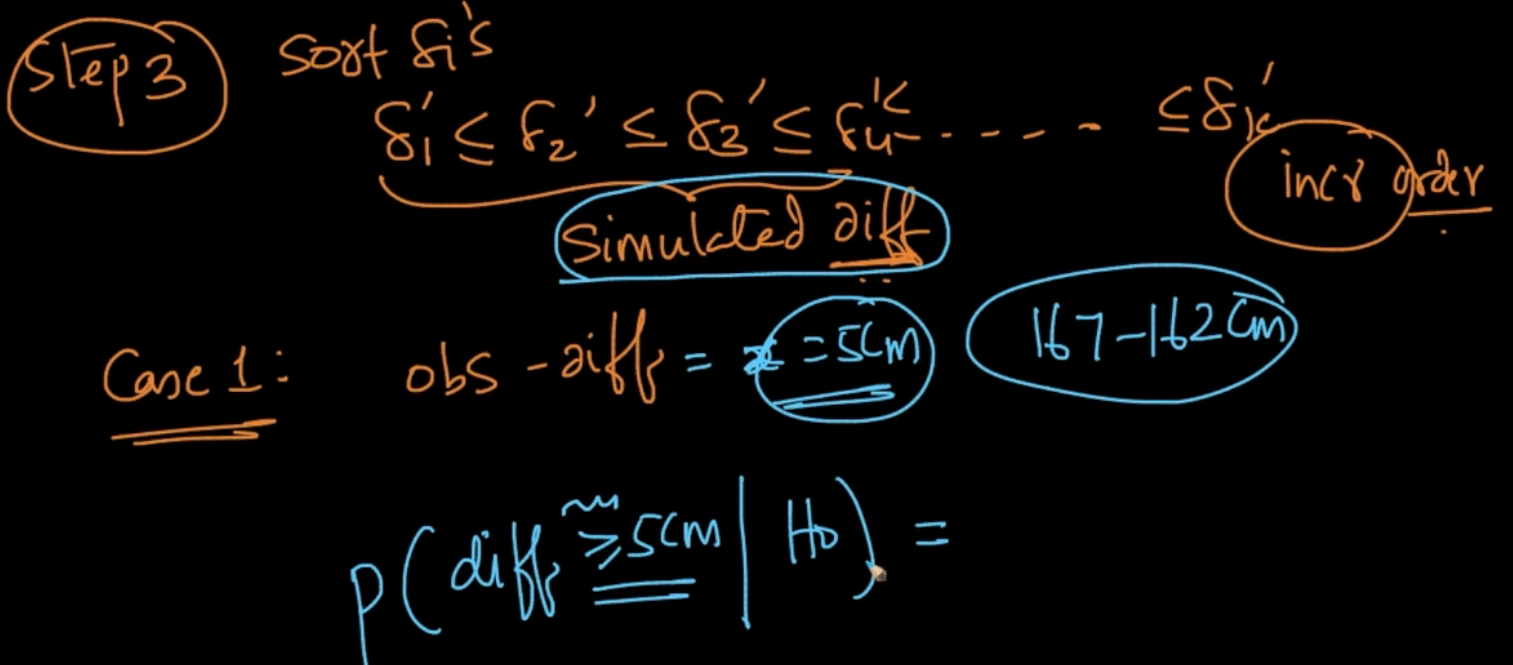 Step 3 sort δi's
δ1' ≤ δ2' ≤ δ3' ≤ δ4' ≤ - - - - ≤ δk'
incr order
simulated diff
Case 1: obs-diff = x = 5cm 167-162 cm
P(diff ≥ 5cm | H0) =